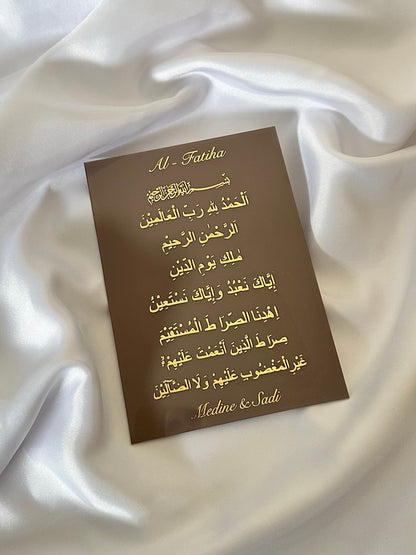 Al - Fatiha
بِسْمِ اللهِ الرَّحْمٰنِ الرَّحِيْمِ
اَلْحَمْدُ لِلهِ رَبِّ الْعَالَمِيْنَ
اَلرَّحْمٰنِ الرَّحِيْمِ
مٰلِكِ يَوْمِ الدِّيْنِ
إِيَّاكَ نَعْبُدُ وَإِيَّاكَ نَسْتَعِيْنُ
اِهْدِنَا الصِّرَاطَ الْمُسْتَقِيْمَ
صِرَاطَ الَّذِيْنَ أَنْعَمْتَ عَلَيْهِمْ
غَيْرِ الْمَغْضُوبِ عَلَيْهِمْ وَلَا الضَّالِّيْنَ
Medine & Sadi